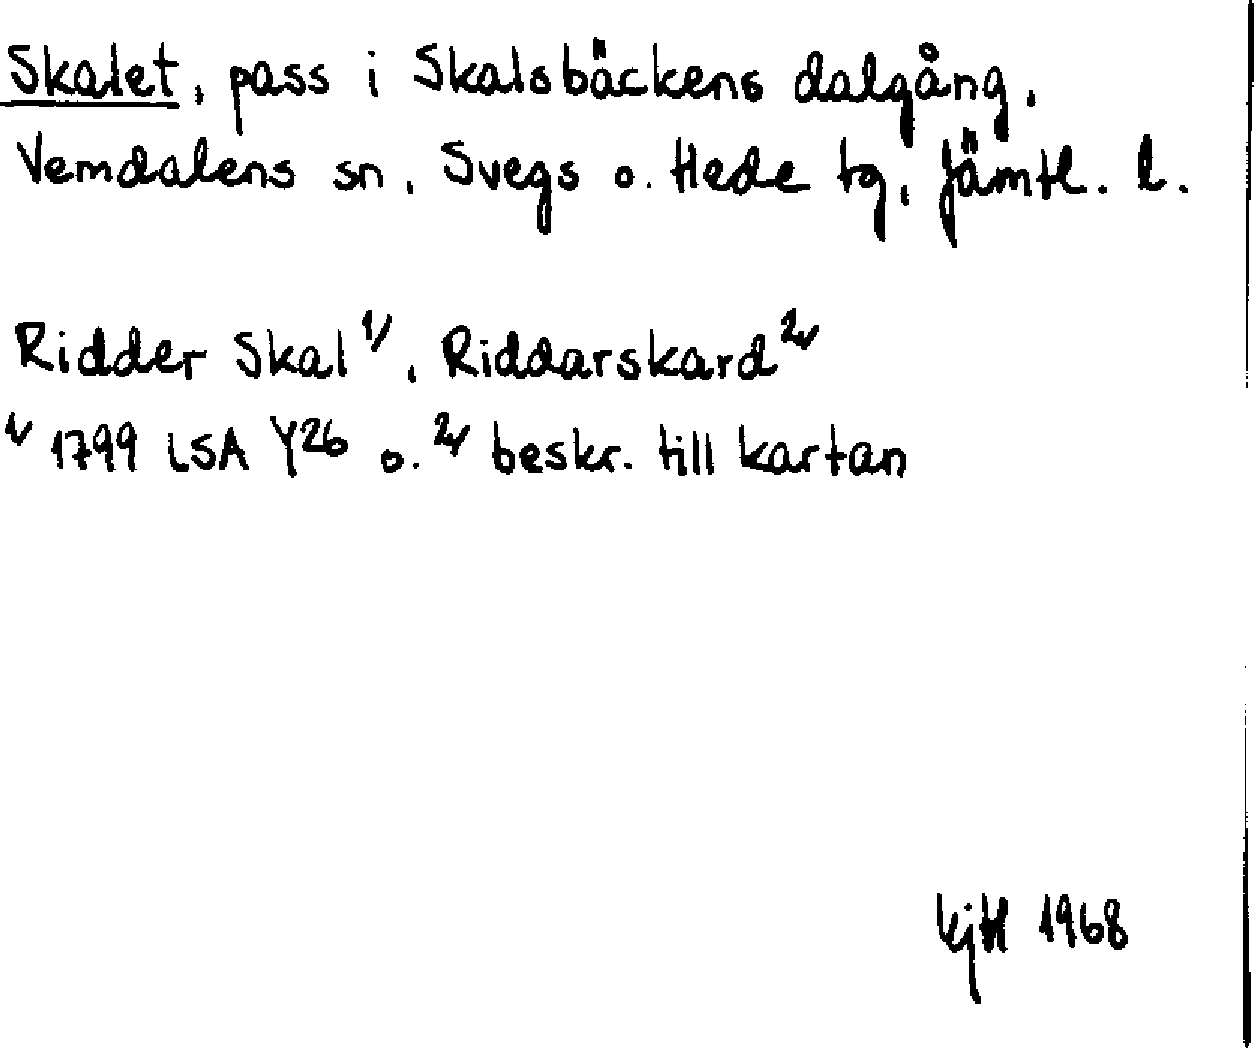 Skalet, pass i Skalsbäckens dalgång,
Vemdalens sn, Svegs o. Hede tg, Jämtl. l.
Ridder Skal 1/, Riddarskard 2/
1/ 1799 LSA Y26 o. 2/ beskr. till kartan
1968